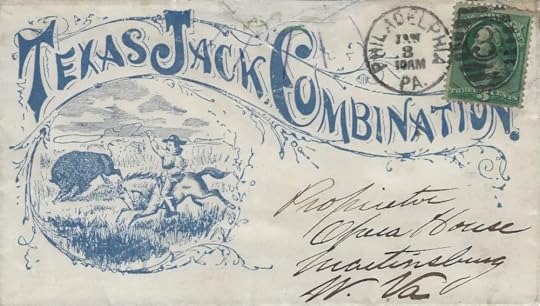 TEXAS JACK COMBINATION.
PHILADELPHIA
JAN
3
10AM
PA
3
THREE CENTS
Proprietor
Opera House
Martinsburg
W. Va